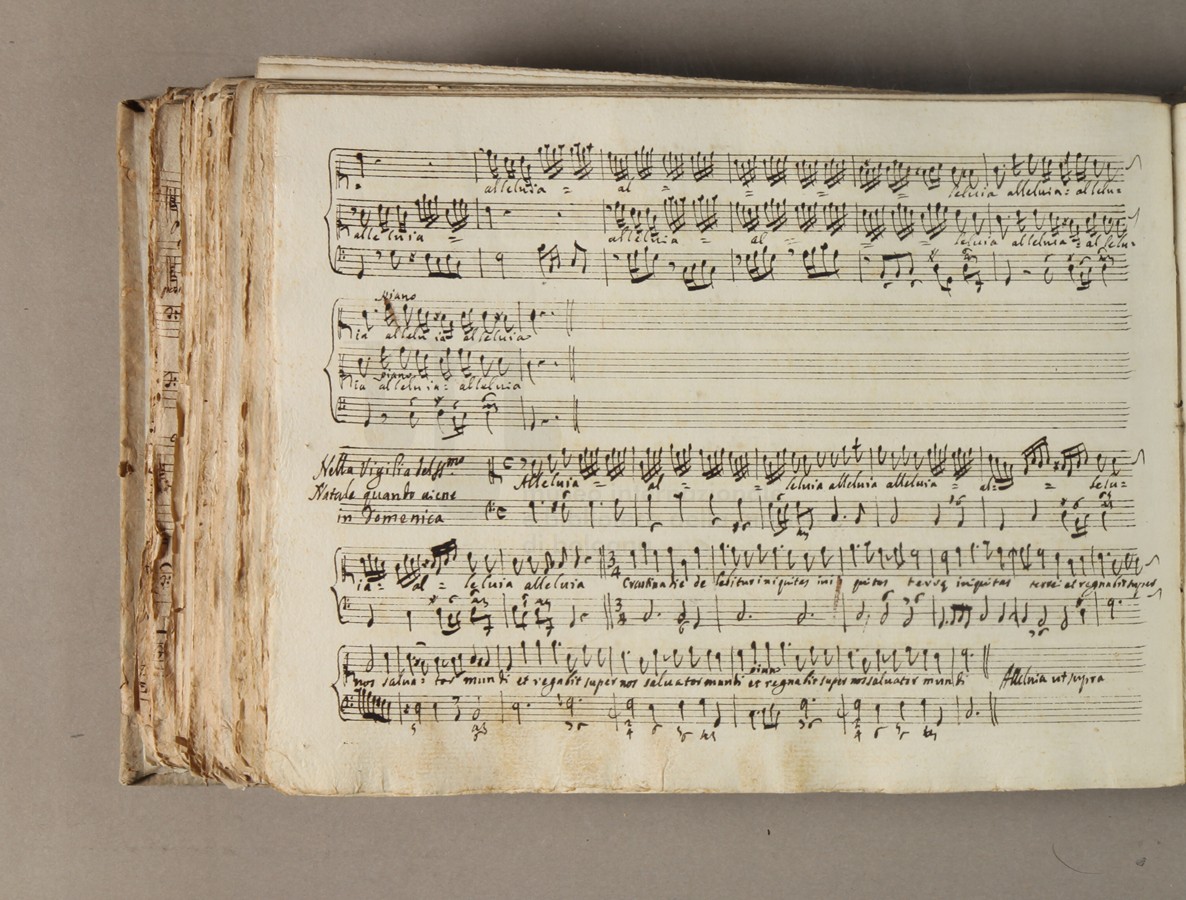 alleluia = al = = = leluia alleluia: allelu=
alleluia = alleluia = al = = leluia alleluia = allelu=
piano
ia alleluia alleluia
piano
ia alleluia: alleluia
Nella Vigilia del SSmo
Natale quando viene
in Domenica
Alleluia = al = = leluia alleluia alleluia al= = lelu=
ia= al = leluia alleluia Crastina die de lebitur iniquitas ini quitas terrę iniquitas terrę et regnabit super
piano
nos salua= tor mundi et regnabit super nos saluator mundi et regnabit super nos saluator mundi Alleluia ut supra